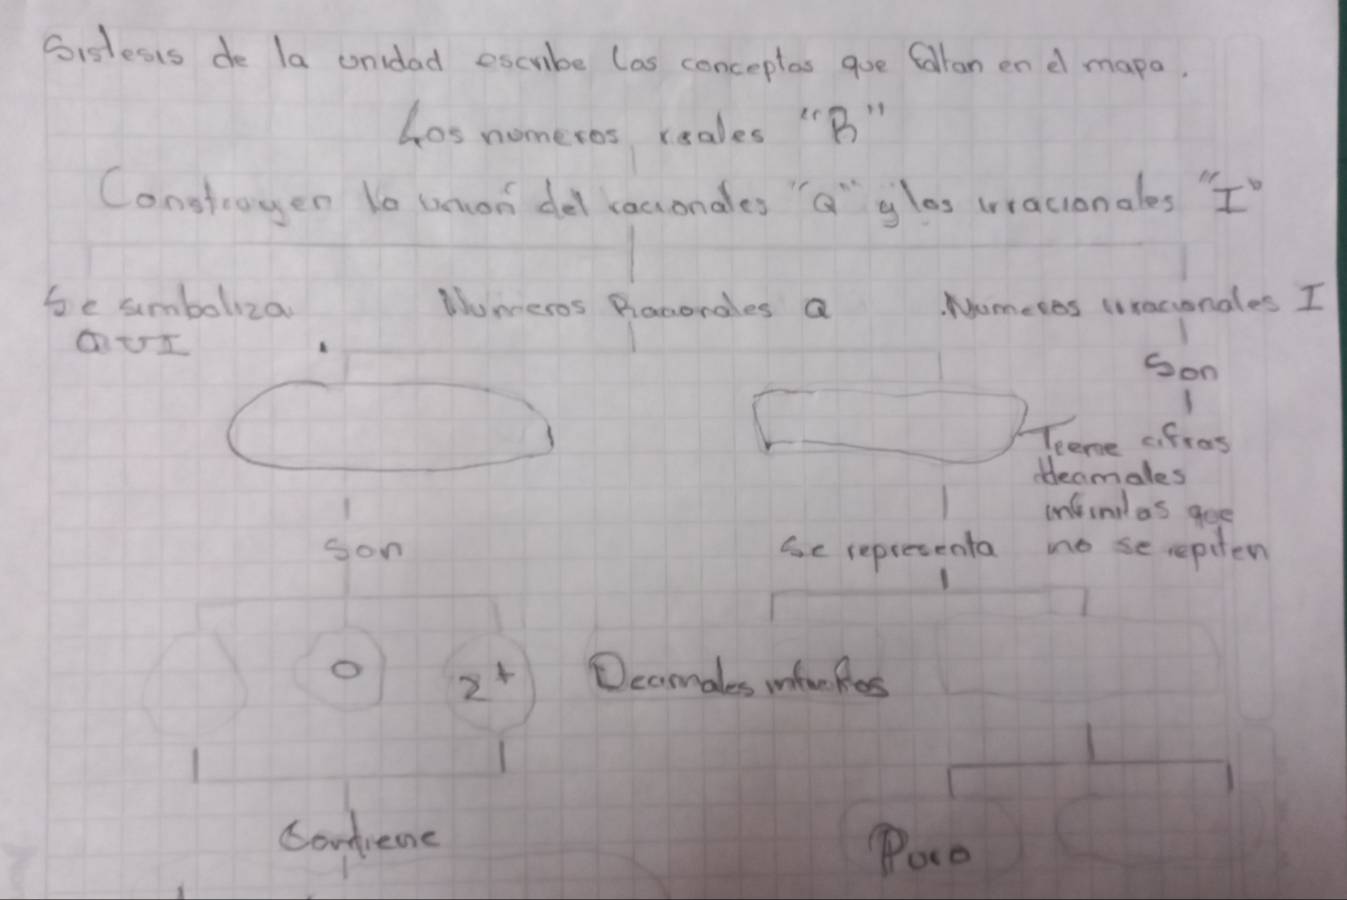 Sislesis de la unidad escribe las conceptos que faltan en el mapa.
Los numeros reales "R"
Construyen la unión del racionales "Q" y los irracionales "I"
Se simboliza Numeros Racionales Q Numeros irracionales I
Q U I
Son
Teeme cifras
decimales
infinitas que
Son Se representa no se repiten
0 Z+ Decimales
Contiene Puro